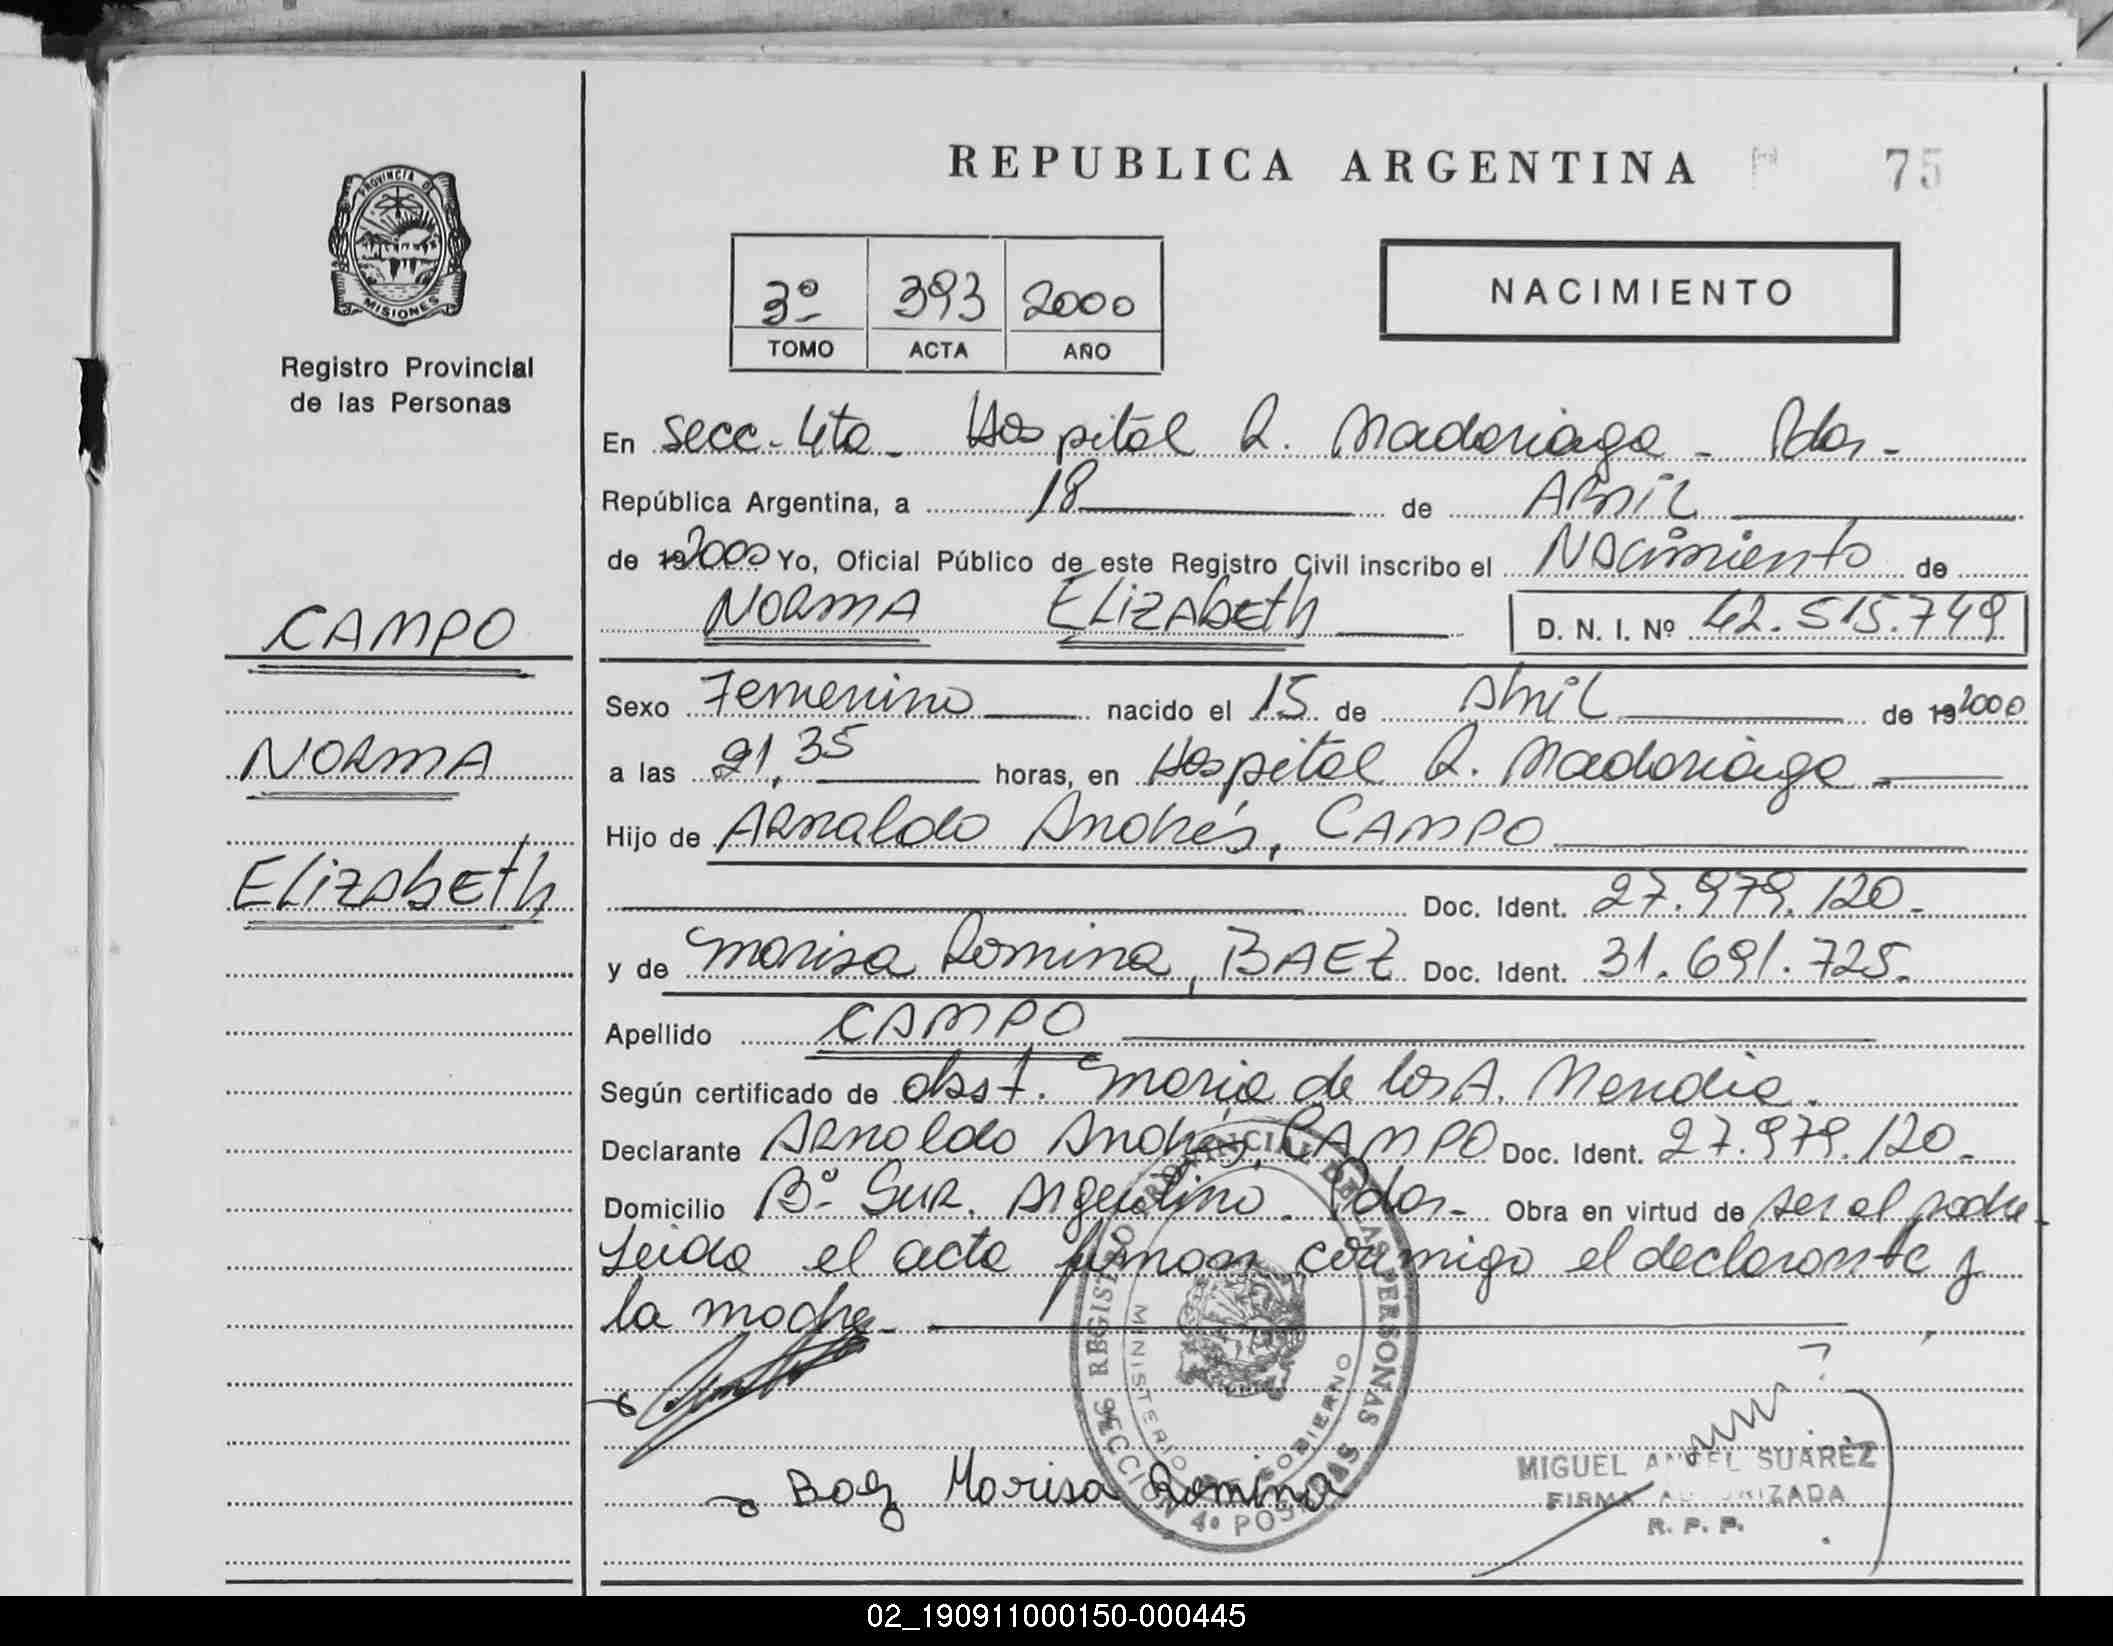 REPUBLICA ARGENTINA
75
PROVINCIA DE
MISIONES
Registro Provincial
de las Personas
3º 393 2000
TOMO ACTA AÑO
NACIMIENTO
En Secc. 4ta - Hospital R. Madariaga - Pdas -
República Argentina, a 18 de Abril
de 19 2000 Yo, Oficial Público de este Registro Civil inscribo el Nacimiento de
NORMA ELIZAbETh D. N. I. Nº 42.515.749
CAMPO
NORMA
ELIZAbETh
Sexo Femenino nacido el 15 de Abril de 19 2000
a las 21,35 horas, en Hospital R. Madariaga
Hijo de Arnaldo Andrés, CAMPO
Doc. Ident. 27.979.120-
y de Marisa Romina, BAEZ Doc. Ident. 31.691.725-
Apellido CAMPO
Según certificado de obst. María de los A. Mendia.
Declarante Arnaldo Andrés, CAMPO Doc. Ident. 27.979.120-
Domicilio Bº Sur. Argentino. Pdas- Obra en virtud de ser el padre
Leida el acta firman conmigo el declarante y
la madre-
REGISTRO PROVINCIAL DE LAS PERSONAS
MINISTERIO DE GOBIERNO
SECCION 4ª POSADAS
Baez Marisa Romina
MIGUEL ANGEL SUAREZ
FIRMA AUTORIZADA
R. P. P.
02_190911000150-000445